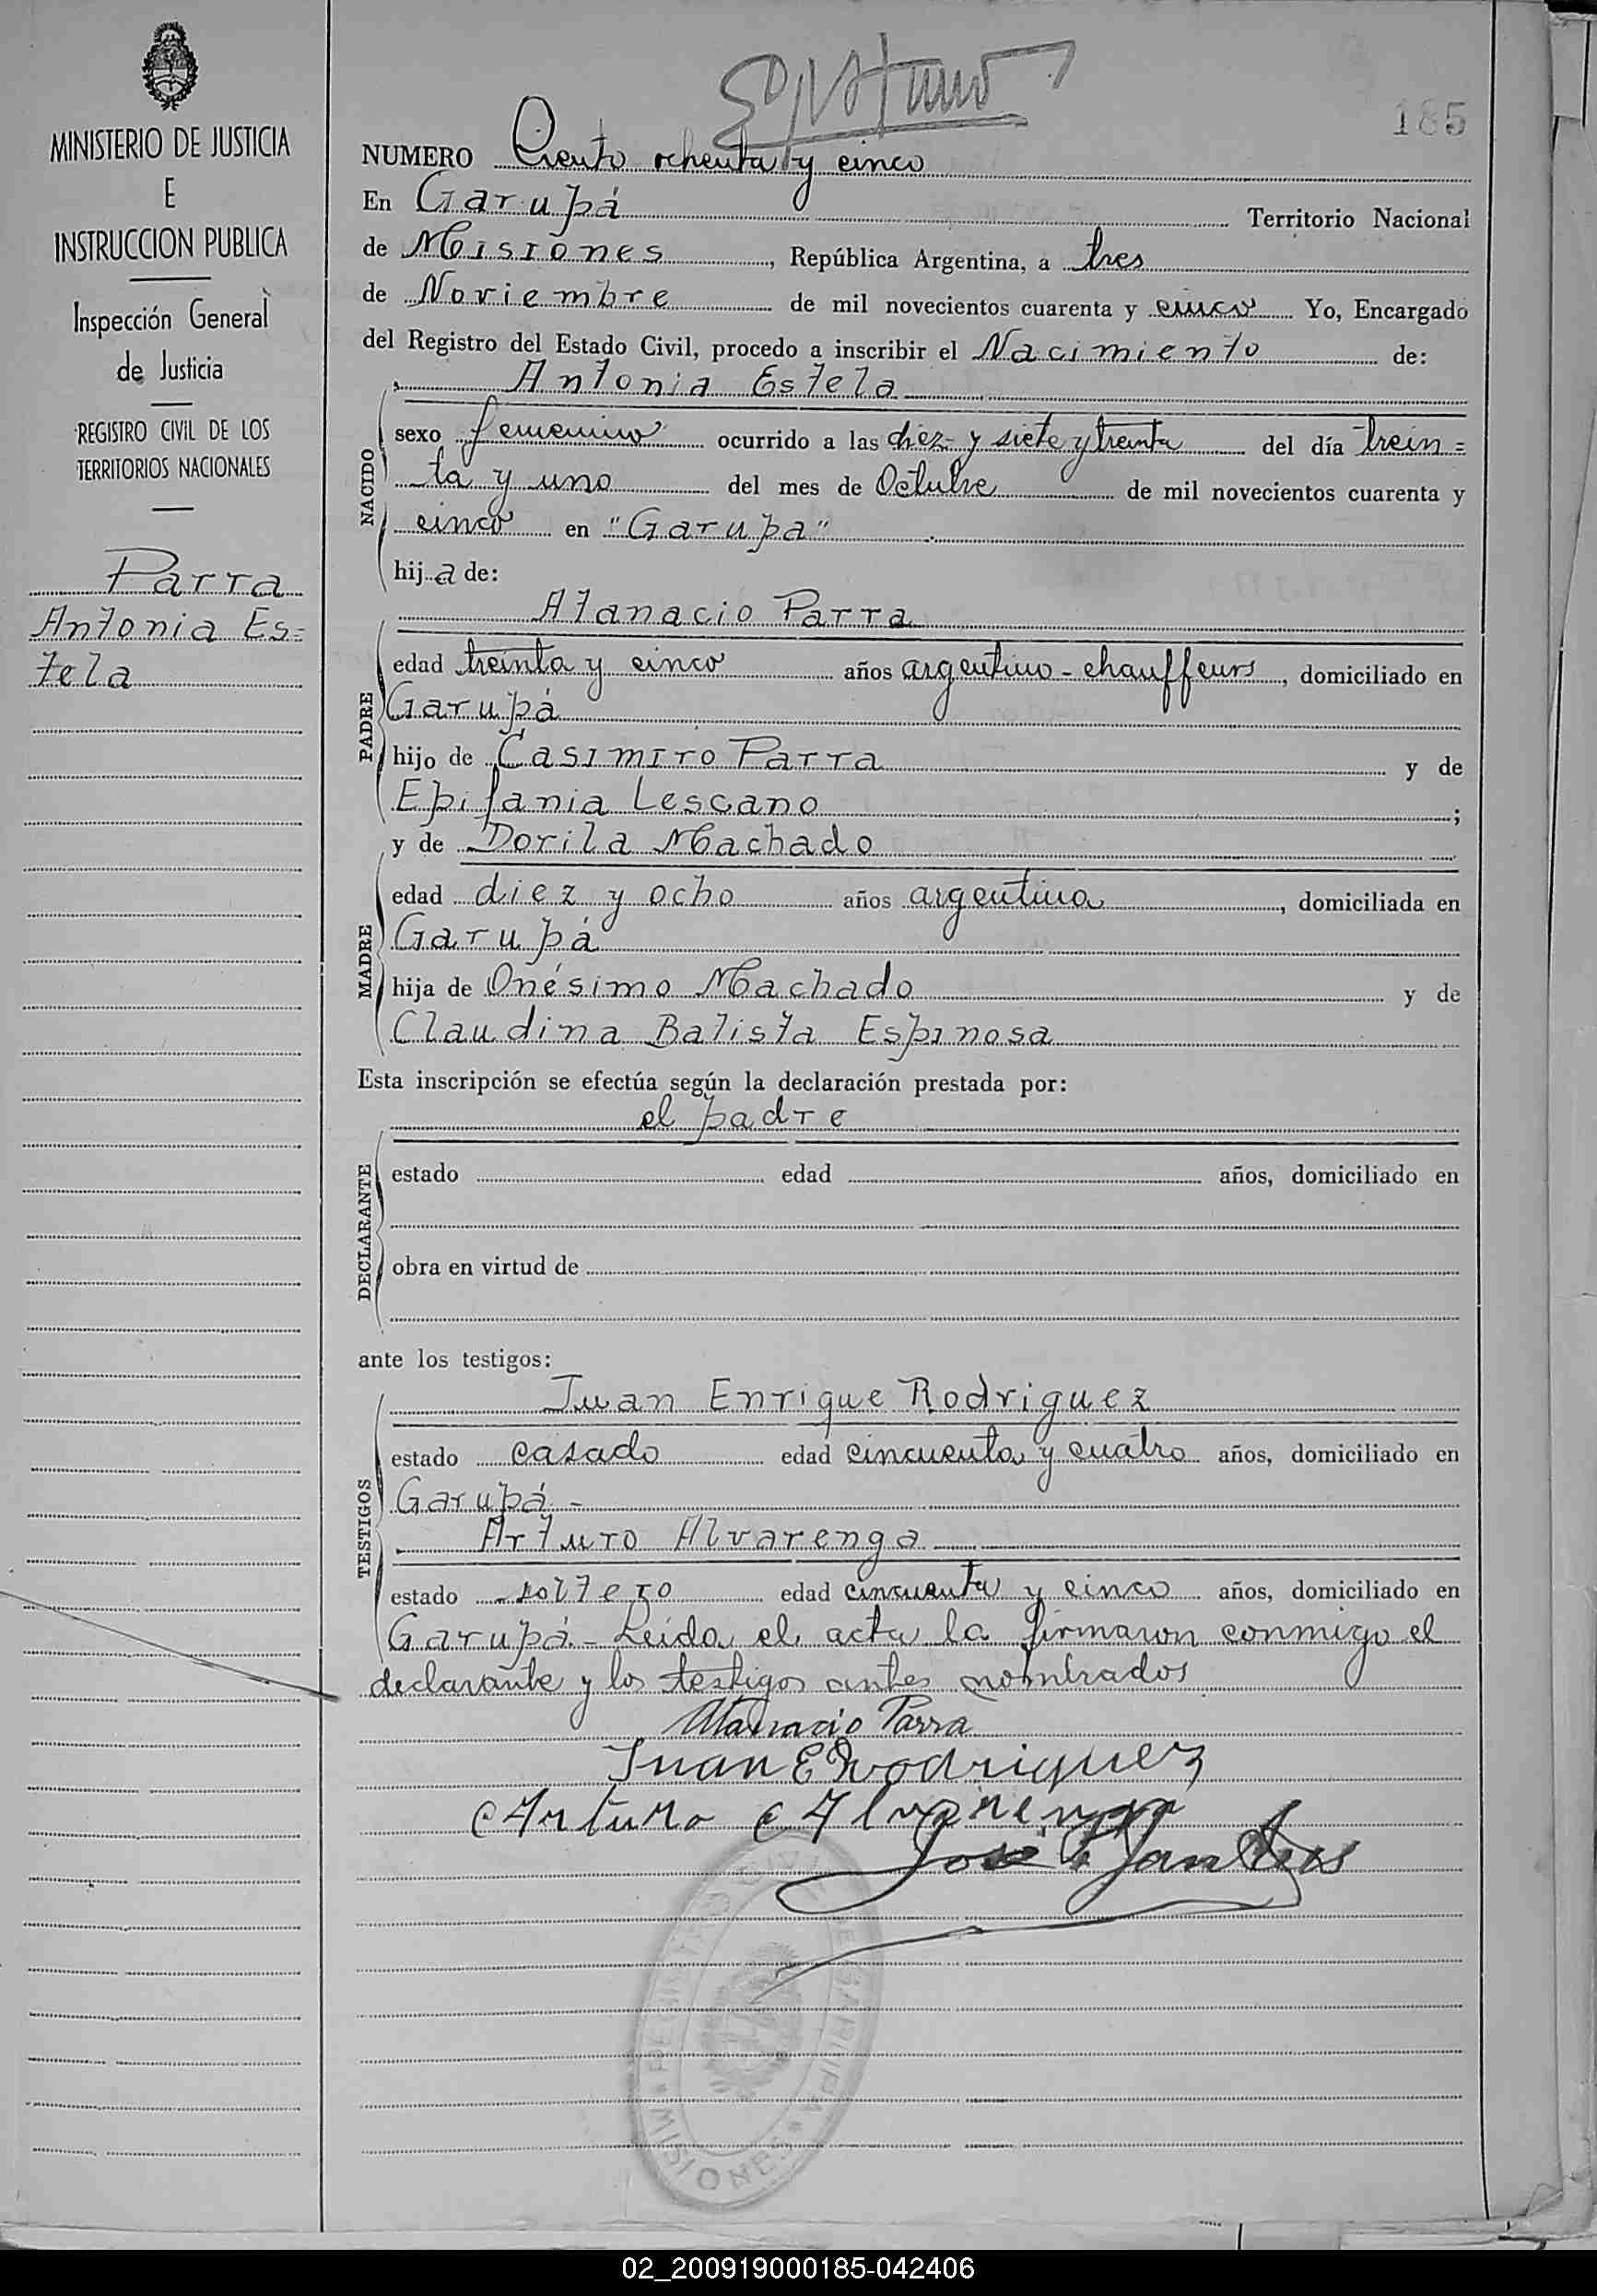 MINISTERIO DE JUSTICIA
E
INSTRUCCION PUBLICA
Inspección General
de Justicia
REGISTRO CIVIL DE LOS
TERRITORIOS NACIONALES
Parra
Antonia Es=
tela
185
NUMERO Ciento ochenta y cinco
En Garupá Territorio Nacional
de Misiones, República Argentina, a tres
de Noviembre de mil novecientos cuarenta y cinco Yo, Encargado
del Registro del Estado Civil, procedo a inscribir el Nacimiento de:
Antonia Estela
NACIDO
sexo femenino ocurrido a las diez y siete y treinta del día trein=
ta y uno del mes de Octubre de mil novecientos cuarenta y
cinco en "Garupa"
hija de:
Atanacio Parra
PADRE
edad treinta y cinco años argentino - chauffeurs, domiciliado en
Garupá
hijo de Casimiro Parra y de
Epifania Lescano;
y de Dorila Machado
MADRE
edad diez y ocho años argentina, domiciliada en
Garupá
hija de Onésimo Machado y de
Claudina Batista Espinosa
Esta inscripción se efectúa según la declaración prestada por:
el padre
DECLARANTE
estado edad años, domiciliado en
obra en virtud de
ante los testigos:
Juan Enrique Rodriguez
TESTIGOS
estado casado edad cincuenta y cuatro años, domiciliado en
Garupá -
Arturo Alvarenga
estado soltero edad cincuenta y cinco años, domiciliado en
Garupá - Leida el acta la firmaron conmigo el
declarante y los testigos antes nombrados
Atanacio Parra
Juan E Rodriguez
Arturo Alvarenga
José
REGISTRO CIVIL GARUPA
MISIONES
02_200919000185-042406